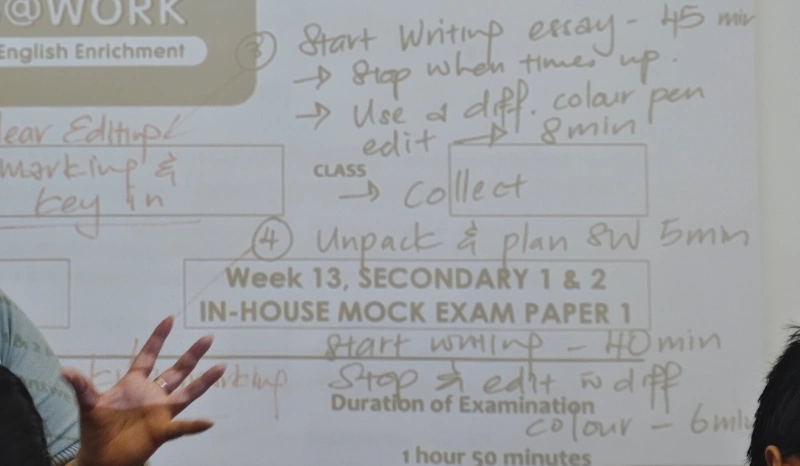 @WORK
English Enrichment
③ Start Writing essay - 45 min
→ Stop when times up.
→ Use a diff. colour pen
edit → 8min
lear Editing
marking &
key in
CLASS
→ collect
④ Unpack & plan SW 5min
Week 13, SECONDARY 1 & 2
IN-HOUSE MOCK EXAM PAPER 1
Start writing - 40 min
Stop & edit in diff
Duration of Examination
colour - 6min
1 hour 50 minutes